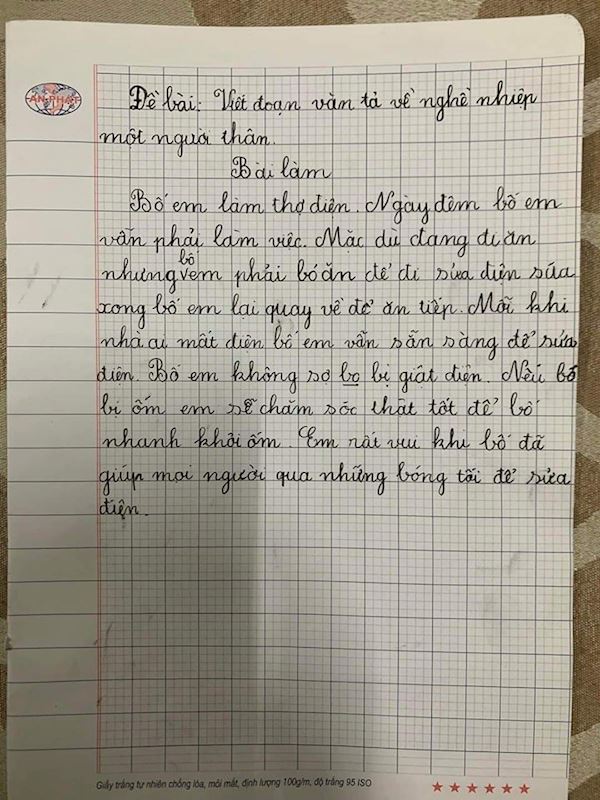 AN PHÁT
Đề bài: Viết đoạn văn tả về nghề nhiệp
một người thân.
Bài làm
Bố em làm thợ điện. Ngày đêm bố em
vẫn phải làm việc. Mặc dù đang đi ăn
nhưng bố em phải bỏ ăn để đi sửa điện sửa
xong bố em lại quay về để ăn tiếp. Mỗi khi
nhà ai mất điện bố em vẫn sẵn sàng để sửa
điện. Bố em không sợ bo bị giật điện. Nếu bố
bị ốm em sẽ chăm sóc thật tốt để bố
nhanh khỏi ốm. Em rất vui khi bố đã
giúp mọi người qua những bóng tối để sửa
điện.
Giấy trắng tự nhiên chống lóa, mỏi mắt, định lượng 100g/m, độ trắng 95 ISO